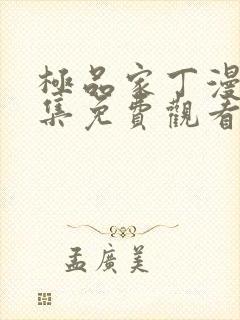 極品家丁漫
集免費觀看
孟廣美